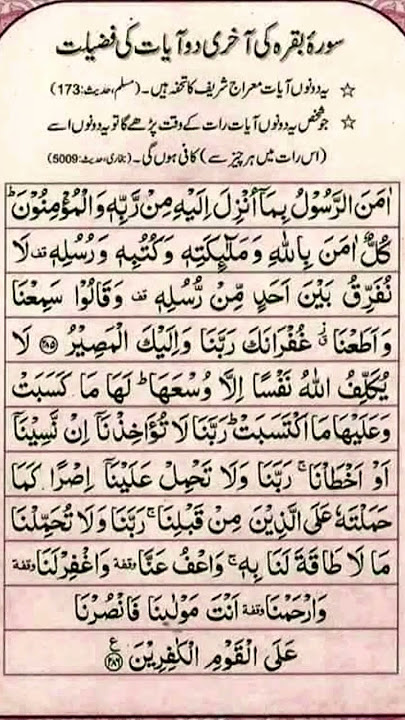 سورۂ بقرہ کی آخری دو آیات کی فضیلت
☆ یہ دونوں آیات معراج شریف کا تحفہ ہیں۔ (مسلم، حدیث:173)
☆ جو شخص یہ دونوں آیات رات کے وقت پڑھے گا تو یہ دونوں اسے
(اس رات میں ہر چیز سے) کافی ہوں گی۔ (بخاری، حدیث:5009)
اٰمَنَ الرَّسُوْلُ بِمَاۤ اُنْزِلَ اِلَيْهِ مِنْ رَّبِّهٖ وَالْمُؤْمِنُوْنَ ؕ
كُلٌّ اٰمَنَ بِاللّٰهِ وَمَلٰٓئِكَتِهٖ وَكُتُبِهٖ وَرُسُلِهٖ قف لَا
نُفَرِّقُ بَيْنَ اَحَدٍ مِّنْ رُّسُلِهٖ قف وَقَالُوْا سَمِعْنَا
وَاَطَعْنَا ۗ غُفْرَانَكَ رَبَّنَا وَاِلَيْكَ الْمَصِيْرُ ﴿۲۸۵﴾ لَا
يُكَلِّفُ اللّٰهُ نَفْسًا اِلَّا وُسْعَهَا ؕ لَهَا مَا كَسَبَتْ
وَعَلَيْهَا مَا اكْتَسَبَتْ ؕ رَبَّنَا لَا تُؤَاخِذْنَاۤ اِنْ نَّسِيْنَاۤ
اَوْ اَخْطَاْنَا ۚ رَبَّنَا وَلَا تَحْمِلْ عَلَيْنَاۤ اِصْرًا كَمَا
حَمَلْتَهٗ عَلَى الَّذِيْنَ مِنْ قَبْلِنَا ۚ رَبَّنَا وَلَا تُحَمِّلْنَا
مَا لَا طَاقَةَ لَنَا بِهٖ ۚ وَاعْفُ عَنَّا وقفة وَاغْفِرْ لَنَا وقفة
وَارْحَمْنَا وقفة اَنْتَ مَوْلٰىنَا فَانْصُرْنَا
عَلَى الْقَوْمِ الْكٰفِرِيْنَ ﴿۲۸۶﴾ ع